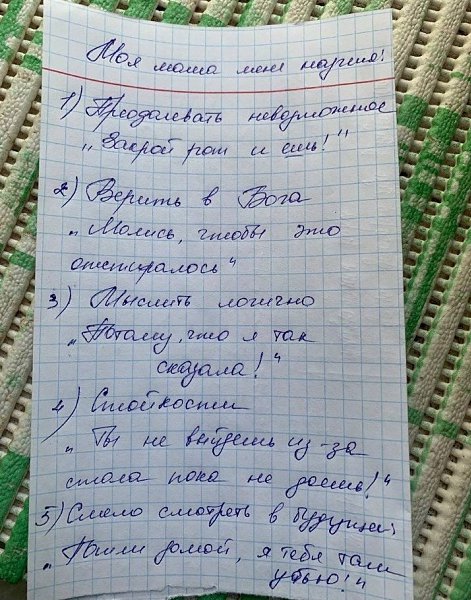 Моя мама меня научила:
1) Преодолевать невозможное
„Закрой рот и ешь!"
2) Верить в Бога
„Молись, чтобы это
отстиралось"
3) Мыслить логично
„Потому, что я так
сказала!"
4) Стойкости
„Ты не выйдешь из-за
стола пока не доешь!"
5) Смело смотреть в будущее
„Пошли домой, я тебя там
убью!"